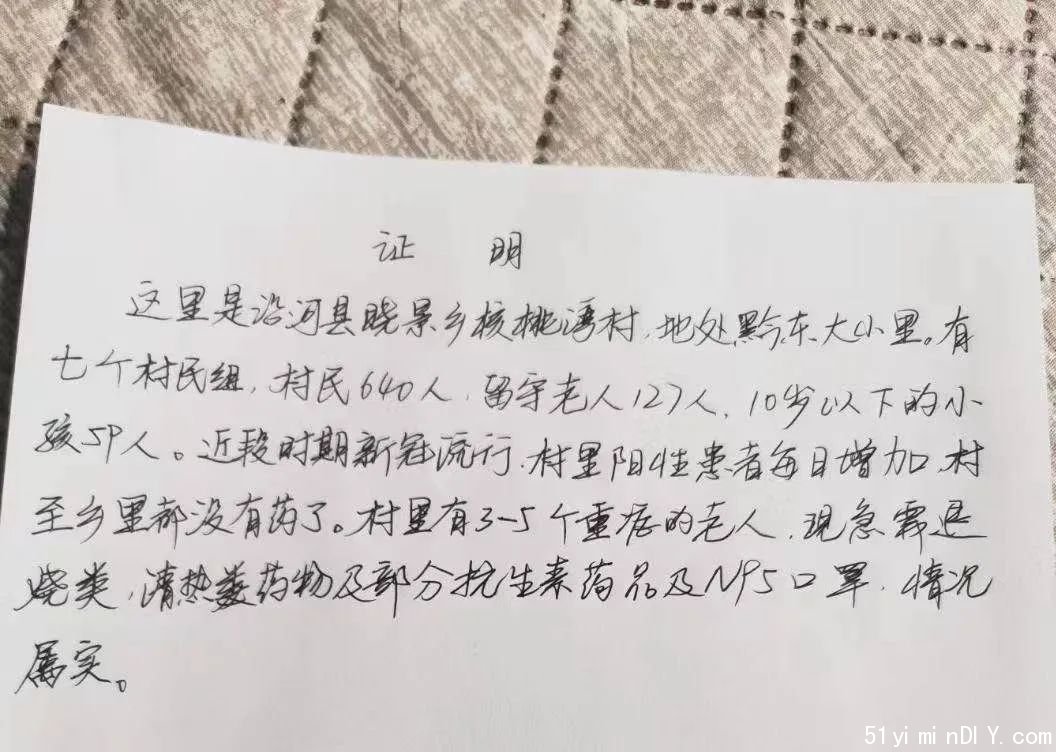 证 明
这里是沿河县晓景乡核桃湾村,地处黔东大小里。有
七个村民组,村民640人,留守老人127人,10岁以下的小
孩59人。近段时期新冠流行,村里阳性患者每日增加,村
至乡里都没有药了。村里有3-5个重症的老人,现急需退
烧类,清热类药物及部分抗生素药品及N95口罩,情况
属实。
51yiminDIY.com